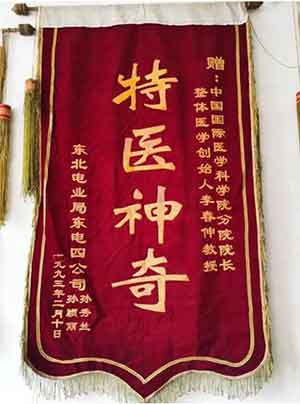 赠：中国国际医学科学院分院院长
整体医学创始人李春仲教授
特医神奇
东北电业局东电四公司孙秀兰
孙颖丽
一九九三年二月十日